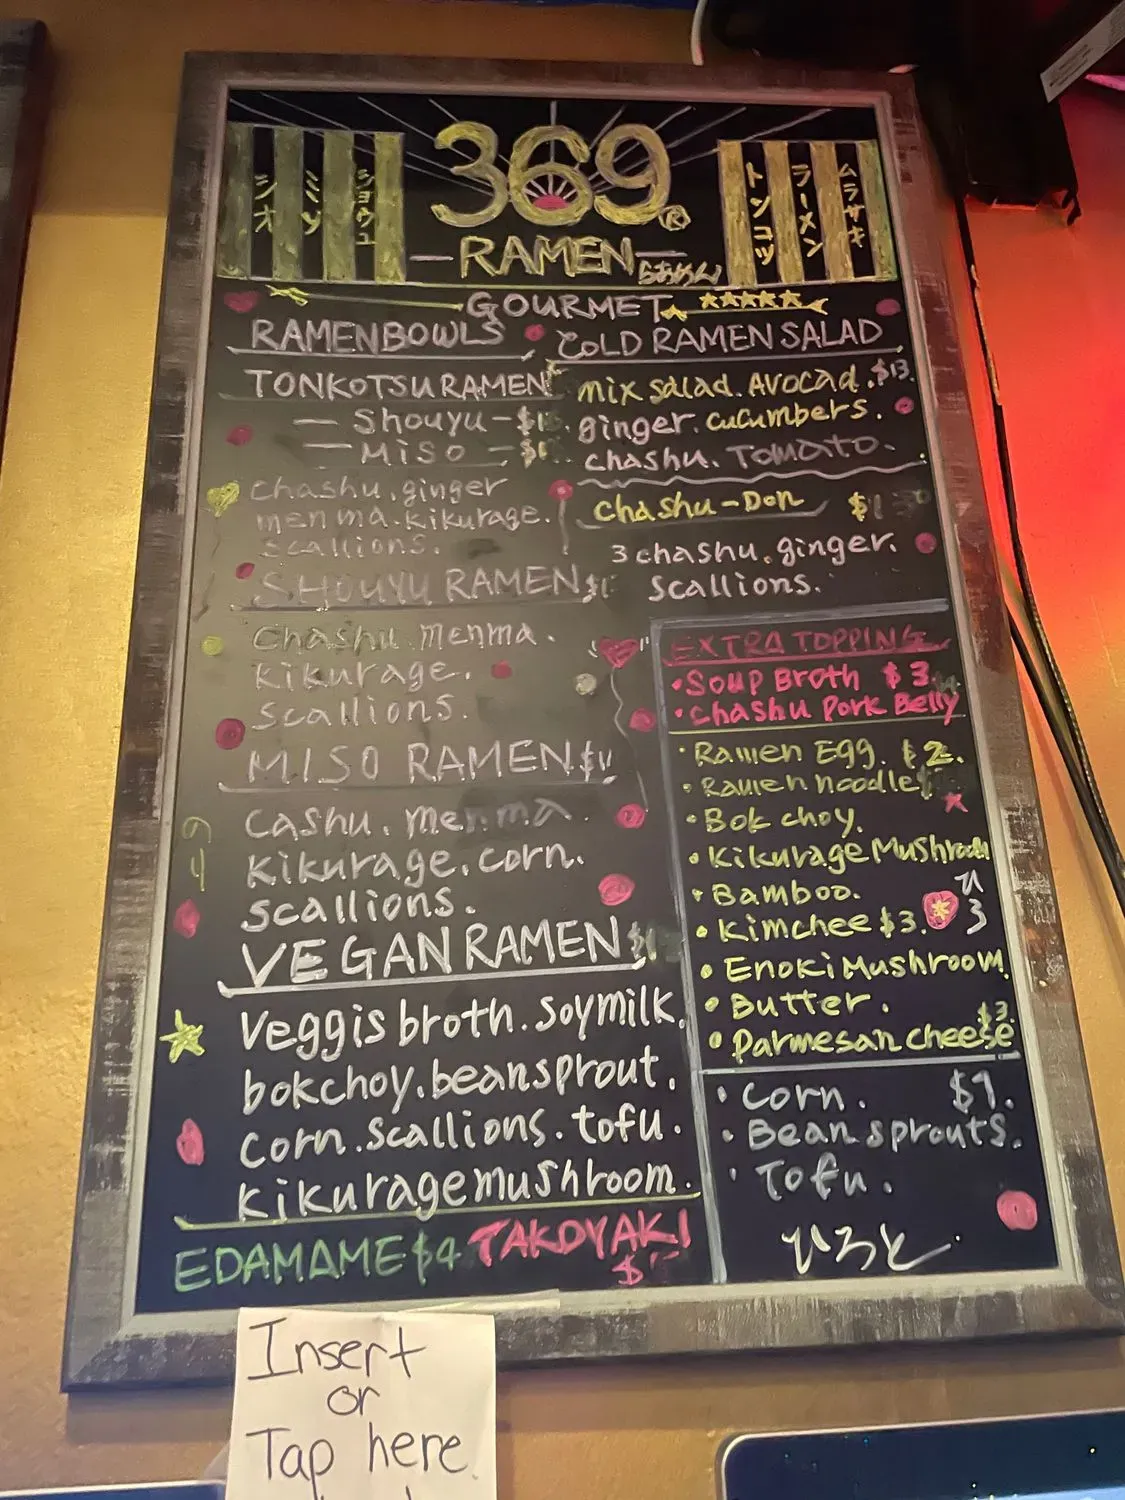 シオ
ミソ
ショウユ
369
®
トンコツ
ラーメン
ムラサキ
RAMEN
らあめん
GOURMET
RAMEN BOWLS
TONKOTSU RAMEN
Shouyu - $
Miso - $
Chashu. ginger
menma. kikurage.
scallions.
SHOUYU RAMEN $
Chashu. menma.
kikurage.
scallions.
MISO RAMEN $
Cashu. menma.
kikurage. corn.
scallions.
VEGAN RAMEN $
Veggis broth. soymilk.
bokchoy. beansprout.
corn. scallions. tofu.
kikurage mushroom.
EDAMAME $4 TAKOYAKI
$
COLD RAMEN SALAD
mix salad. Avocad. $13.
ginger. cucumbers.
chashu. Tomato.
chashu-Don $
3 chashu. ginger.
scallions.
EXTRA TOPPING
• Soup Broth $3.
• Chashu Pork Belly
• Ramen Egg. $2.
• Ramen noodle
• Bok choy.
• Kikurage Mushroom
• Bamboo.
• Kimchee $3.
• Enoki Mushroom.
• Butter.
$3.
• Parmesan cheese
• Corn. $1.
• Bean sprouts.
• Tofu.
ひろと
Insert
or
Tap here